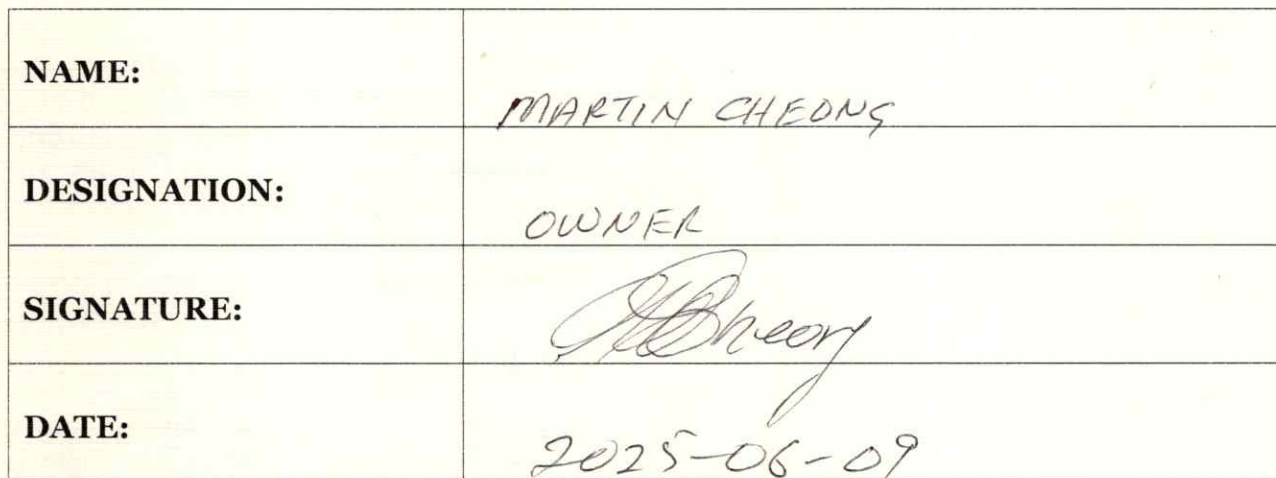 NAME: MARTIN CHEONG
DESIGNATION: OWNER
SIGNATURE: Cheong
DATE: 2025-06-09